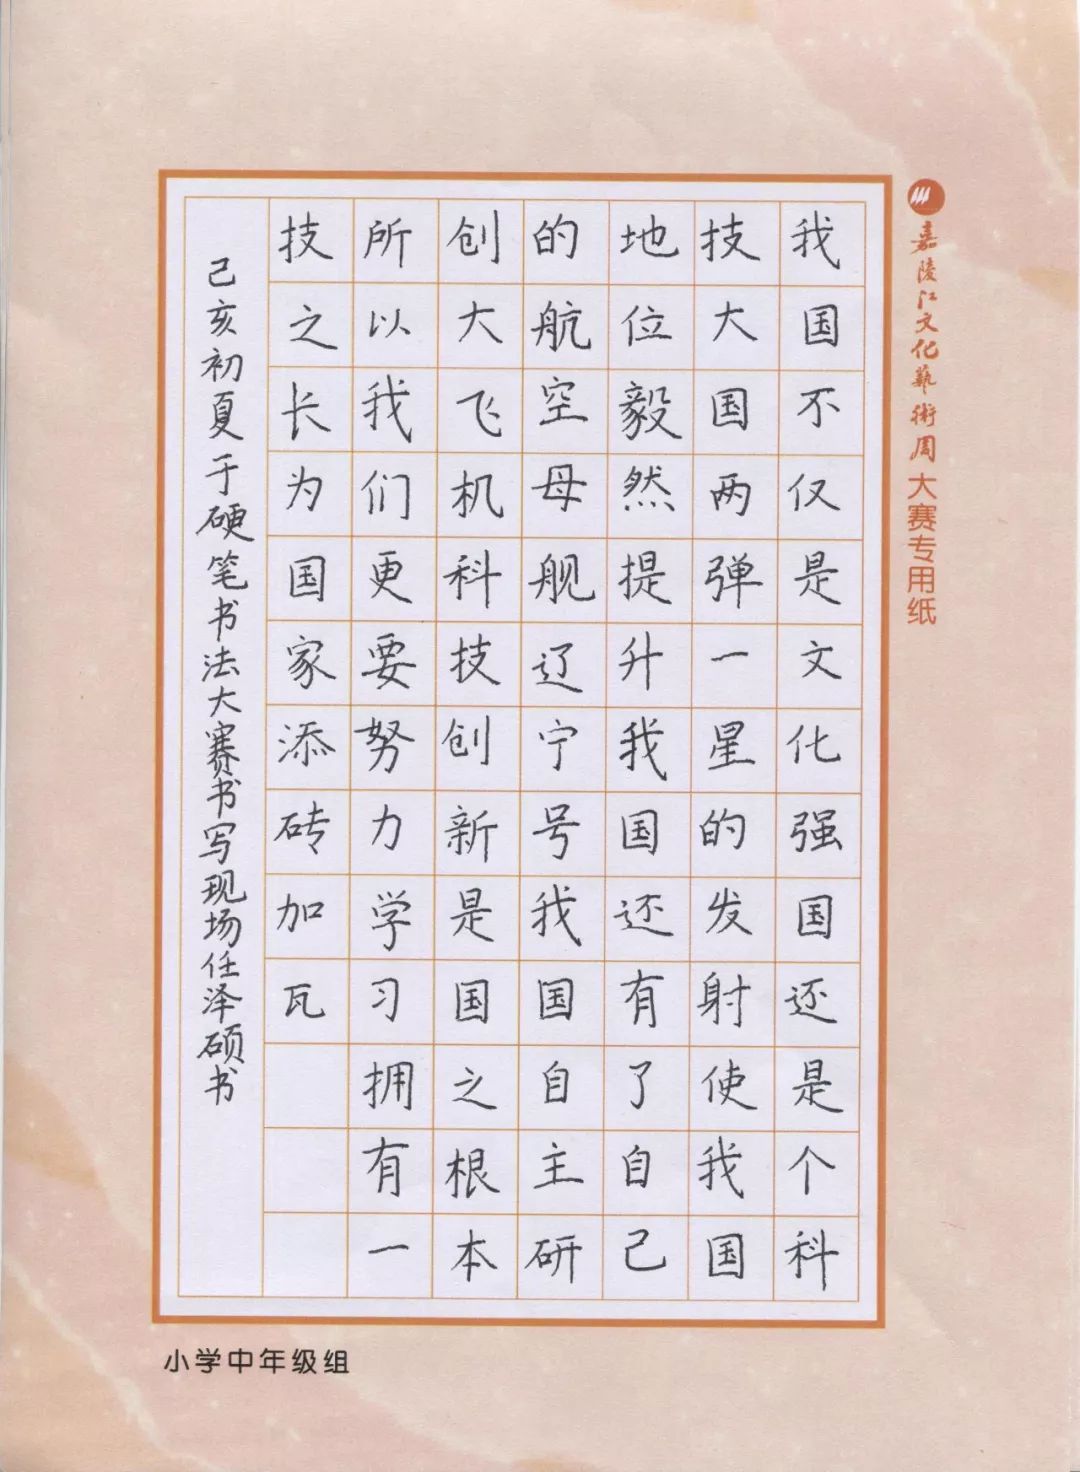 嘉陵江文化藝術周大赛专用纸
我国不仅是文化强国还是个科
技大国两弹一星的发射使我国
地位毅然提升我国还有了自己
的航空母舰辽宁号我国自主研
创大飞机科技创新是国之根本
所以我们更要努力学习拥有一
技之长为国家添砖加瓦
己亥初夏于硬笔书法大赛书写现场任泽硕书
小学中年级组